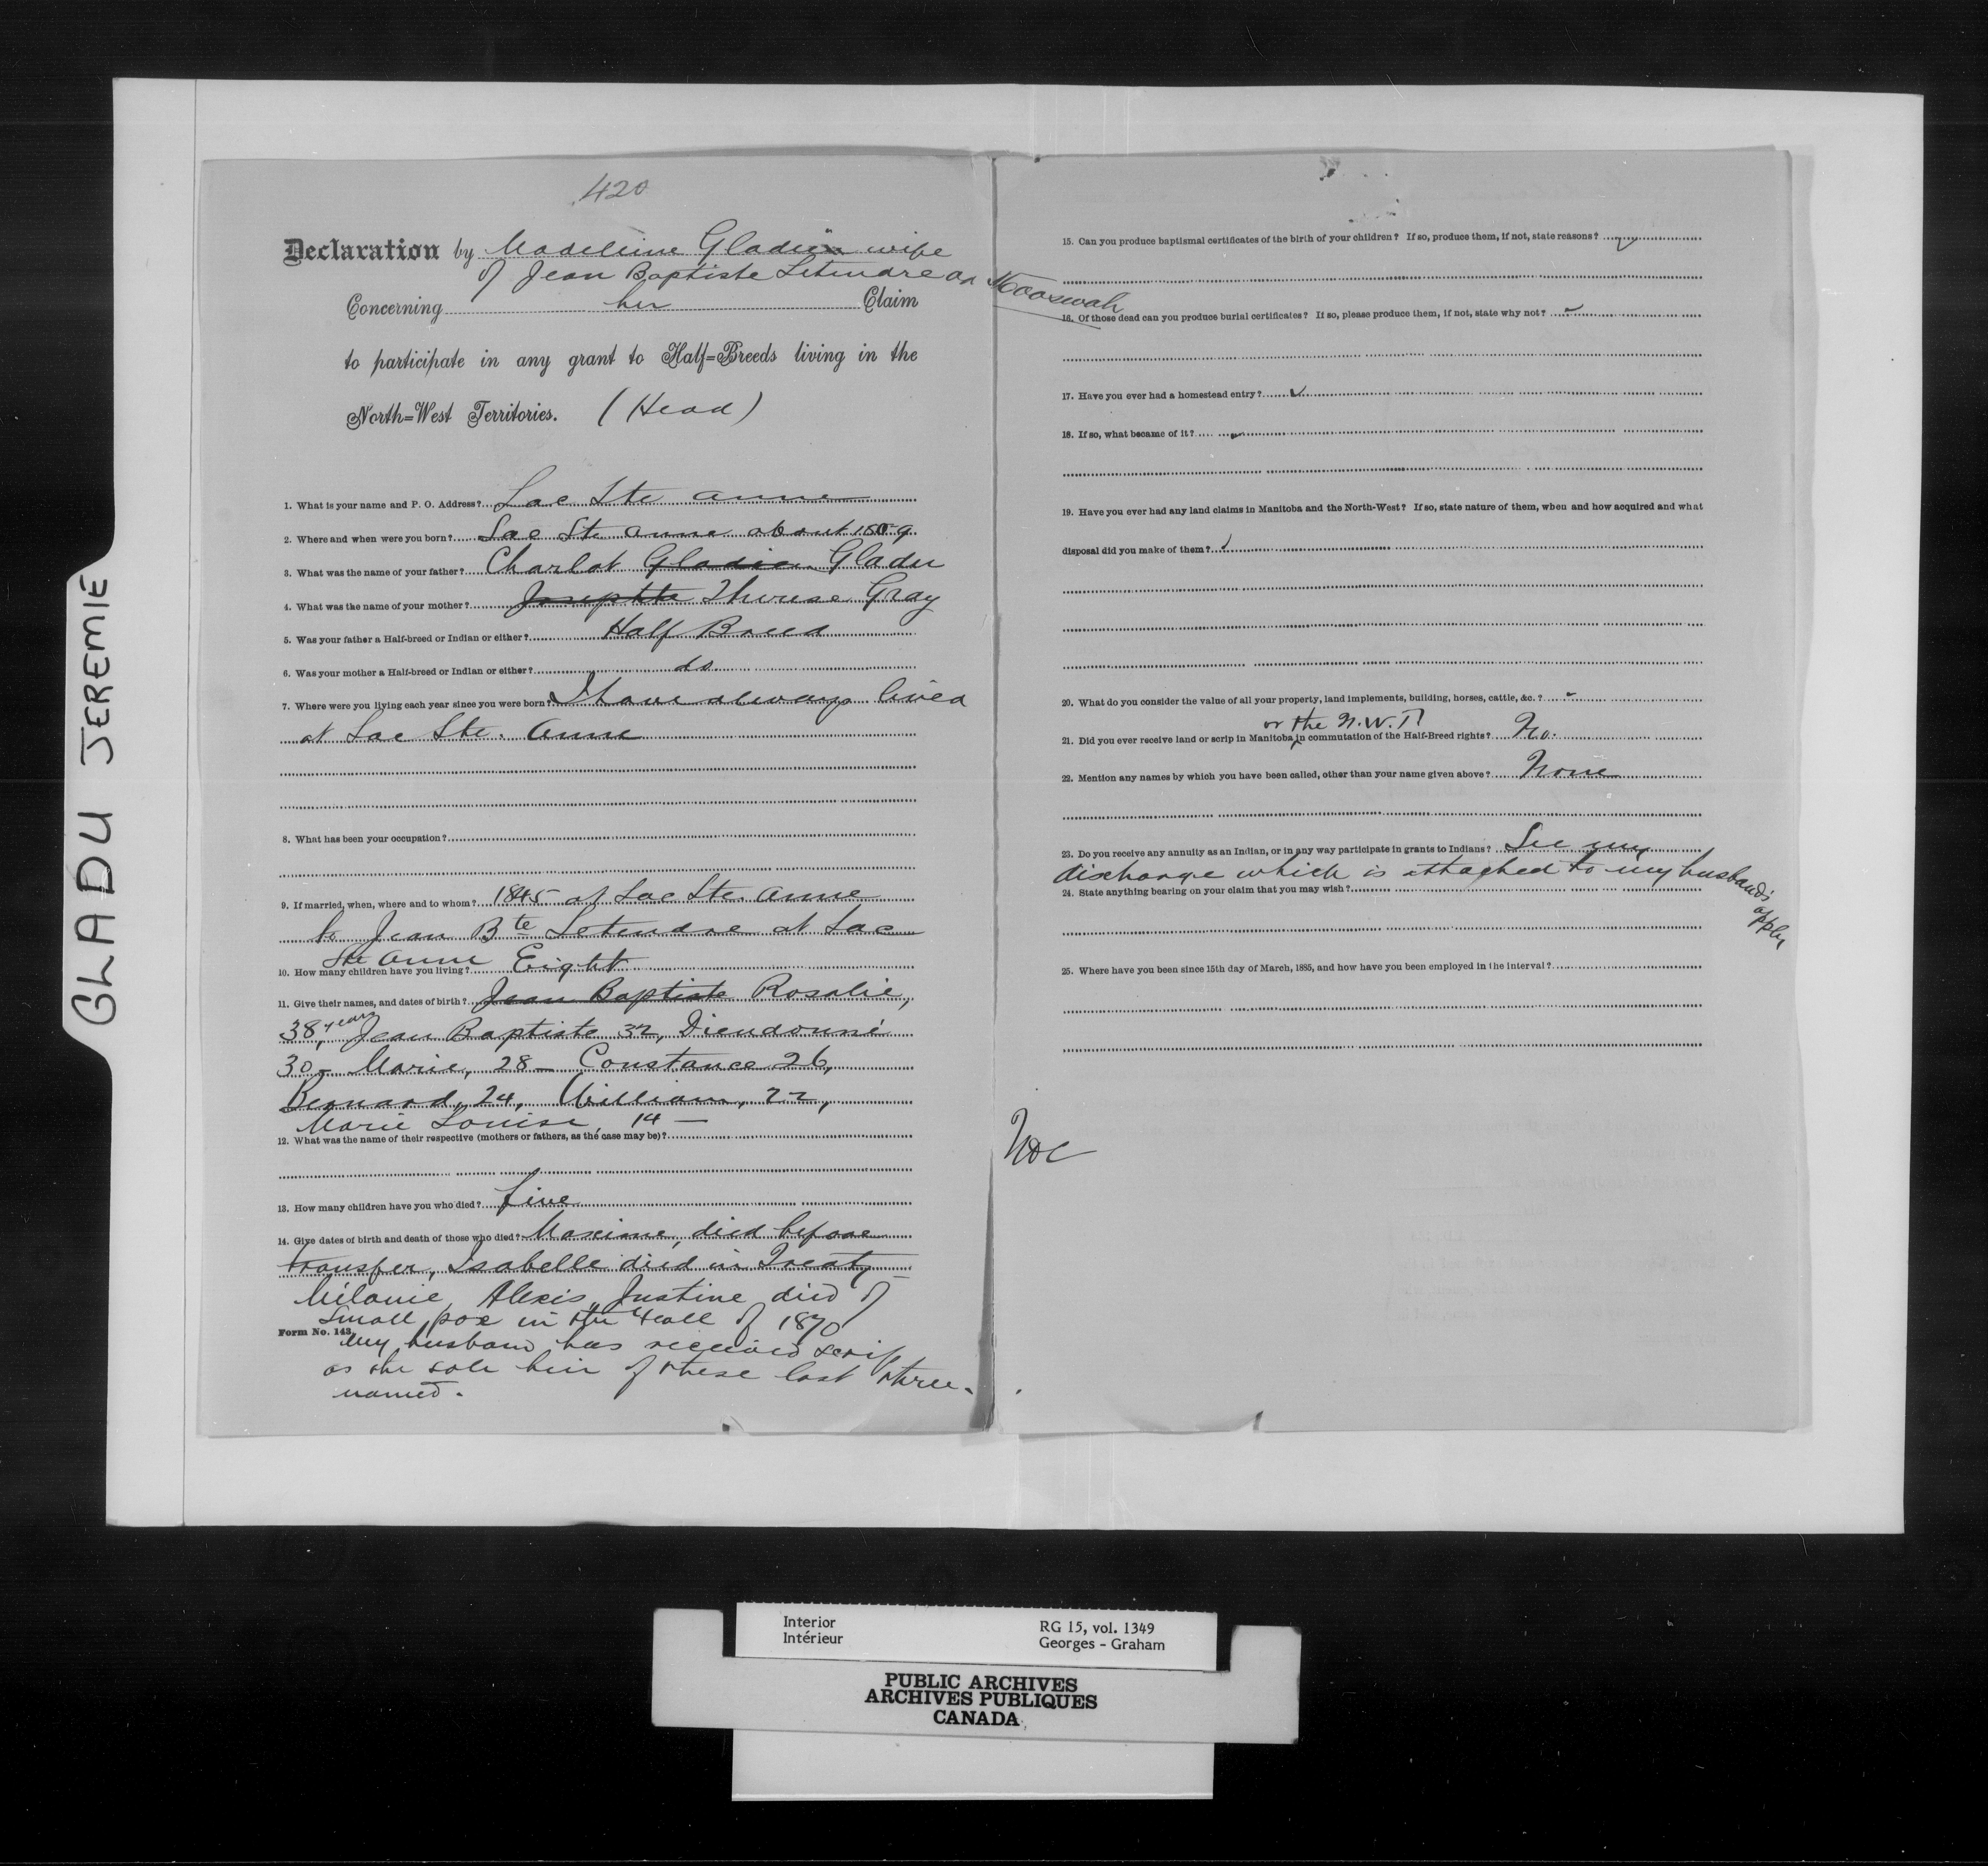 GLADU JEREMIE
420
Declaration by Madeleine Gladu wife
of Jean Baptiste Letendre or Mooswah
Concerning her Claim
to participate in any grant to Half=Breeds living in the
North=West Territories. (Head)
1. What is your name and P. O. Address? Lac Ste Anne
2. Where and when were you born? Lac Ste Anne about
3. What was the name of your father? Charlot Gladu
4. What was the name of your mother? Josephte Therese Gray
5. Was your father a Half-breed or Indian or either? Half Breed
6. Was your mother a Half-breed or Indian or either? do
7. Where were you living each year since you were born? I have always lived
at Lac Ste. Anne
8. What has been your occupation?
9. If married, when, where and to whom? 1845 at Lac Ste. Anne
to Jean Bte Letendre at Lac
Ste Anne
10. How many children have you living? Eight
11. Give their names, and dates of birth? Jean Baptiste Rosalie,
38 years, Jean Baptiste 32, Dieudonné
30 - Marie, 28 - Constance 26,
Bernard, 24, William, 22,
Marie Louise, 14 -
12. What was the name of their respective (mothers or fathers, as the case may be)?
13. How many children have you who died? five
14. Give dates of birth and death of those who died? Maxime, died before
transfer, Isabelle died in Treaty -
Mélanie, Alexis, Justine died of
Small pox in the Fall of 1870
Form No. 143.
My husband has received scrip
as the sole heir of these last three -
named.
15. Can you produce baptismal certificates of the birth of your children? If so, produce them, if not, state reasons?
16. Of those dead can you produce burial certificates? If so, please produce them, if not, state why not?
17. Have you ever had a homestead entry?
18. If so, what became of it?
19. Have you ever had any land claims in Manitoba and the North-West? If so, state nature of them, when and how acquired and what
disposal did you make of them?
20. What do you consider the value of all your property, land implements, building, horses, cattle, &c.?
or the N.W.T.
21. Did you ever receive land or scrip in Manitoba in commutation of the Half-Breed rights? No.
22. Mention any names by which you have been called, other than your name given above? None
23. Do you receive any annuity as an Indian, or in any way participate in grants to Indians? See my
discharge which is attached to my husband's apply
24. State anything bearing on your claim that you may wish?
25. Where have you been since 15th day of March, 1885, and how have you been employed in the interval?
Interior
Intérieur
RG 15, vol. 1349
Georges - Graham
PUBLIC ARCHIVES
ARCHIVES PUBLIQUES
CANADA